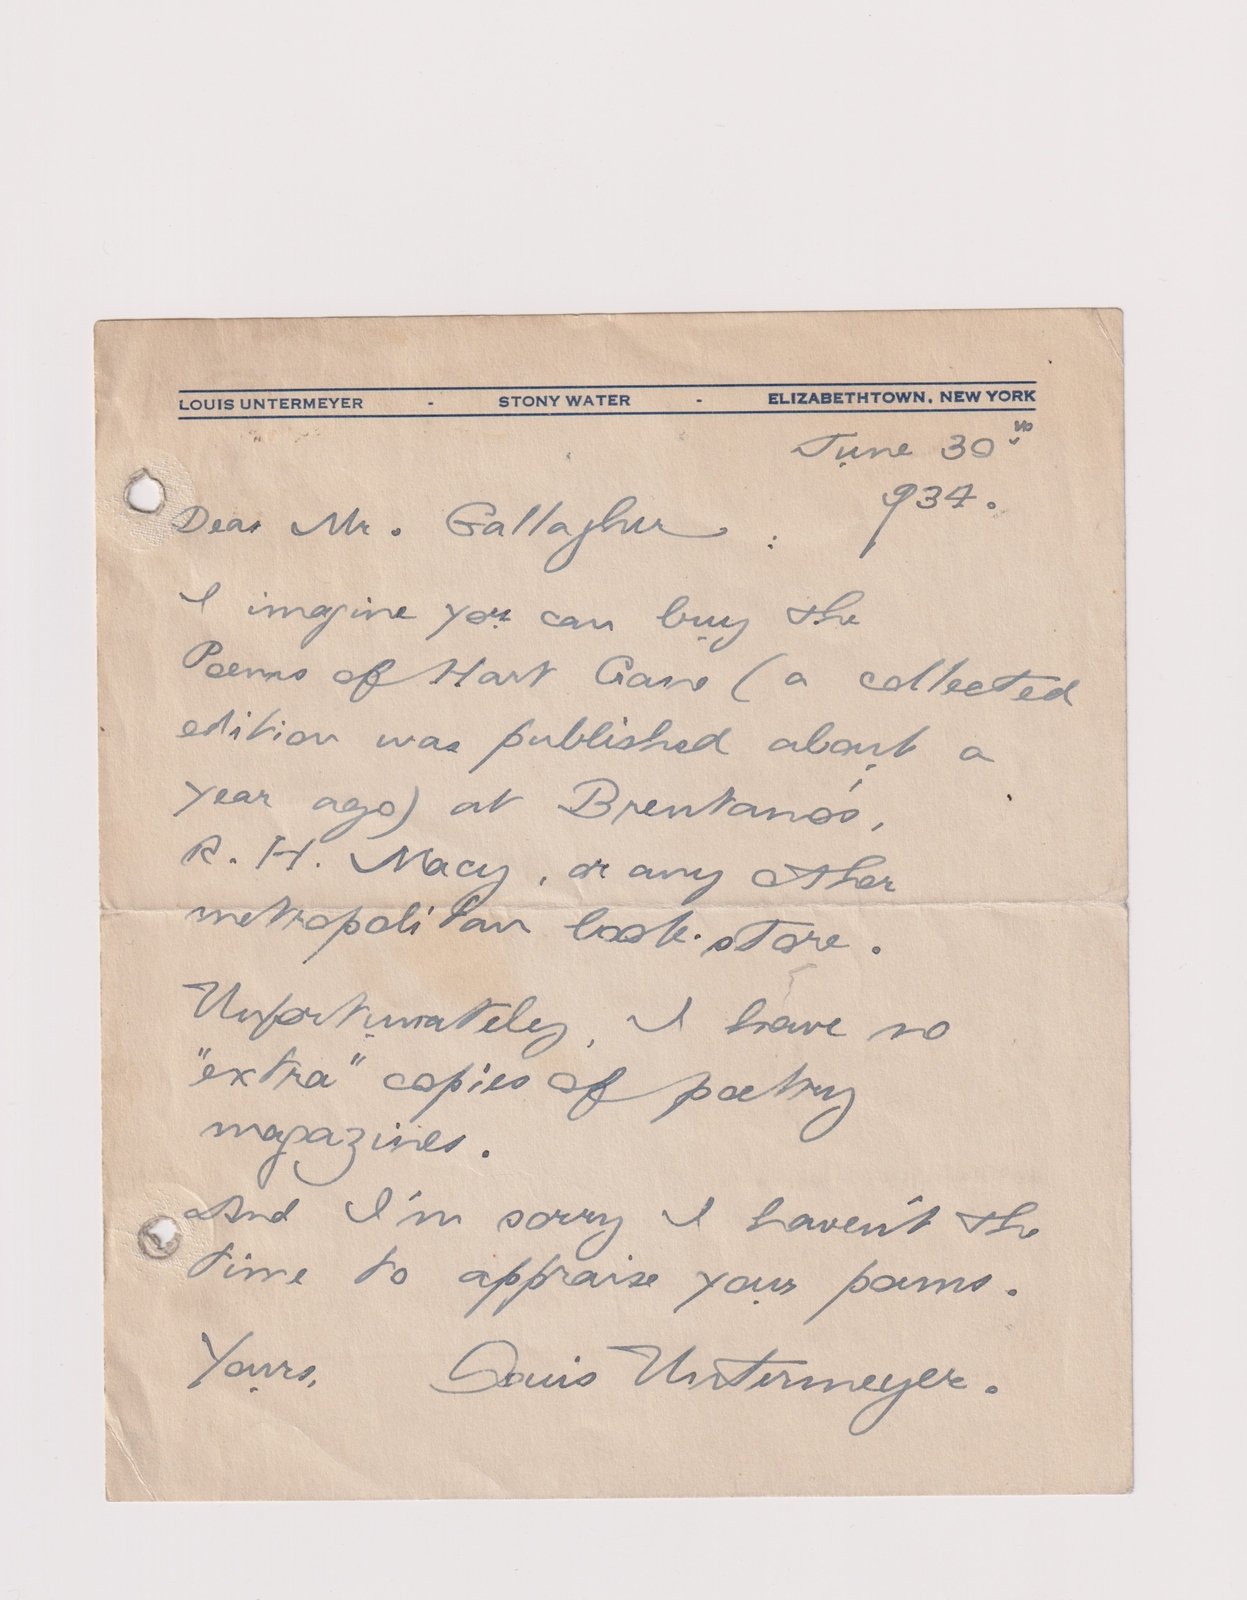 LOUIS UNTERMEYER - STONY WATER - ELIZABETHTOWN, NEW YORK
June 30th
934.
Dear Mr. Gallagher :
I imagine you can buy the
Poems of Hart Crane (a collected
edition was published about a
year ago) at Brentano's,
R. H. Macy, or any other
metropolitan book-store.
Unfortunately, I have no
"extra" copies of poetry
magazines.
And I'm sorry I haven't the
time to appraise your poems.
Yours,
Louis Untermeyer.